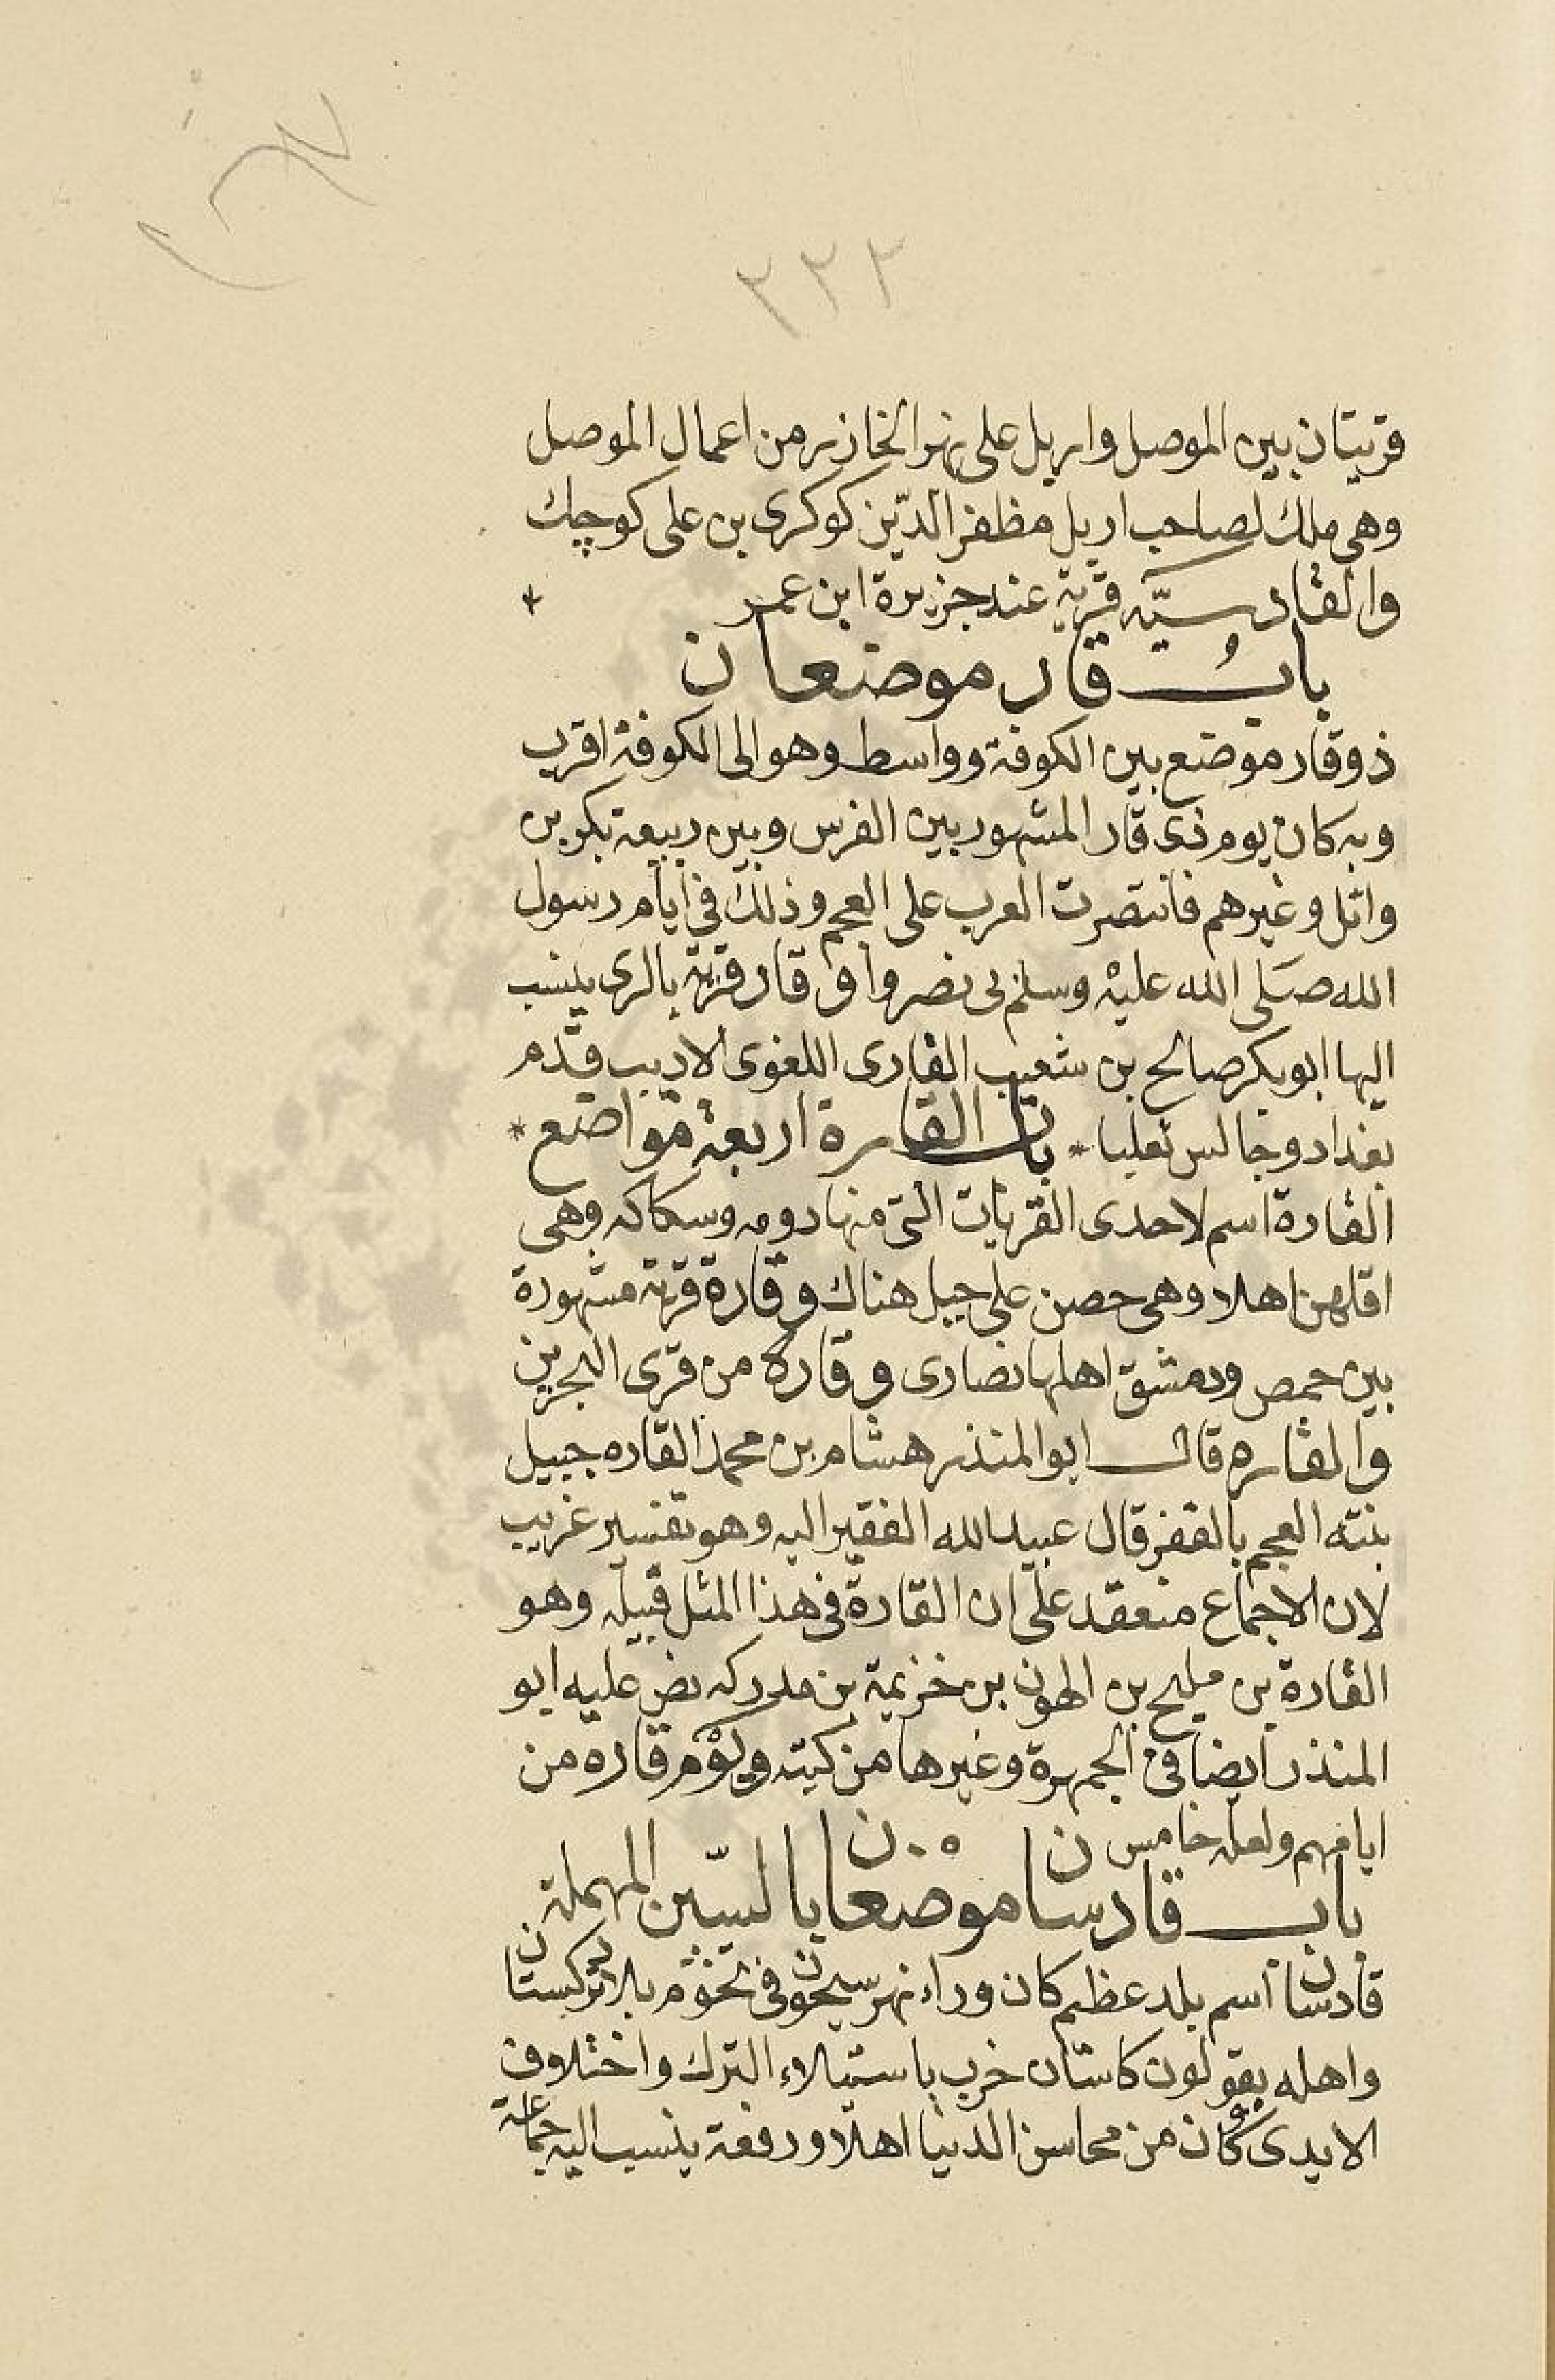 ٣٣٢
قريتان بين الموصل واربل على نهر الخازر من اعمال الموصل
وهى ملك لصاحب اربل مظفر الدّين كوكرى بن على كوچك
والقادسيّه قرية عند جزيرة ابن عمر
باب قار موضعان
ذو قار موضع بين الكوفة وواسط وهو الى الكوفة اقرب
وبه كان يوم ذى قار المشهور بين الفرس وبين ربيعة بكر بن
وائل وغيرهم فانتصرت العرب على العجم وذلك فى ايام رسول
الله صلى الله عليه وسلم بى نصروا وقار قرية بالرى ينسب
اليها ابو بكر صالح بن شعيب القارى اللغوى الاديب قدم
بغداد وجالس ثعلبا * باب القارة اربعة مواضع *
القارة اسم لاحدى القريات التى منها دومه وسكاكه وهى
اقلهن اهلا وهى حصن على جبل هناك وقارة قرية مشهورة
بين حمص ودمشق اهلها نصارى وقارة من قرى البحرين
والقاره قال ابو المنذر هشام بن محمد القاره جبيل
بنته العجم بالقفر قال عبيد الله الفقير اليه وهو تفسير غريب
لان الاجماع منعقد على ان القارة فى هذا المثل قبيله وهو
القارة بن مليح بن الهون بن خزيمة بن مدركه نص عليه ابو
المنذر ايضا فى الجمهرة وغيرها من كتبه ويوم قاره من
ايامهم ولعله خامس
باب قادسان موضعان بالسّين المهملة
قادسان اسم بلد عظيم كان وراء نهر سيحون فى تخوم بلاد تركستان
واهله يقولون كاسّان خرب باستيلاء الترك واختلاف
الايدى كان من محاسن الدنيا اهلا ورفعة ينسب اليه جماعة